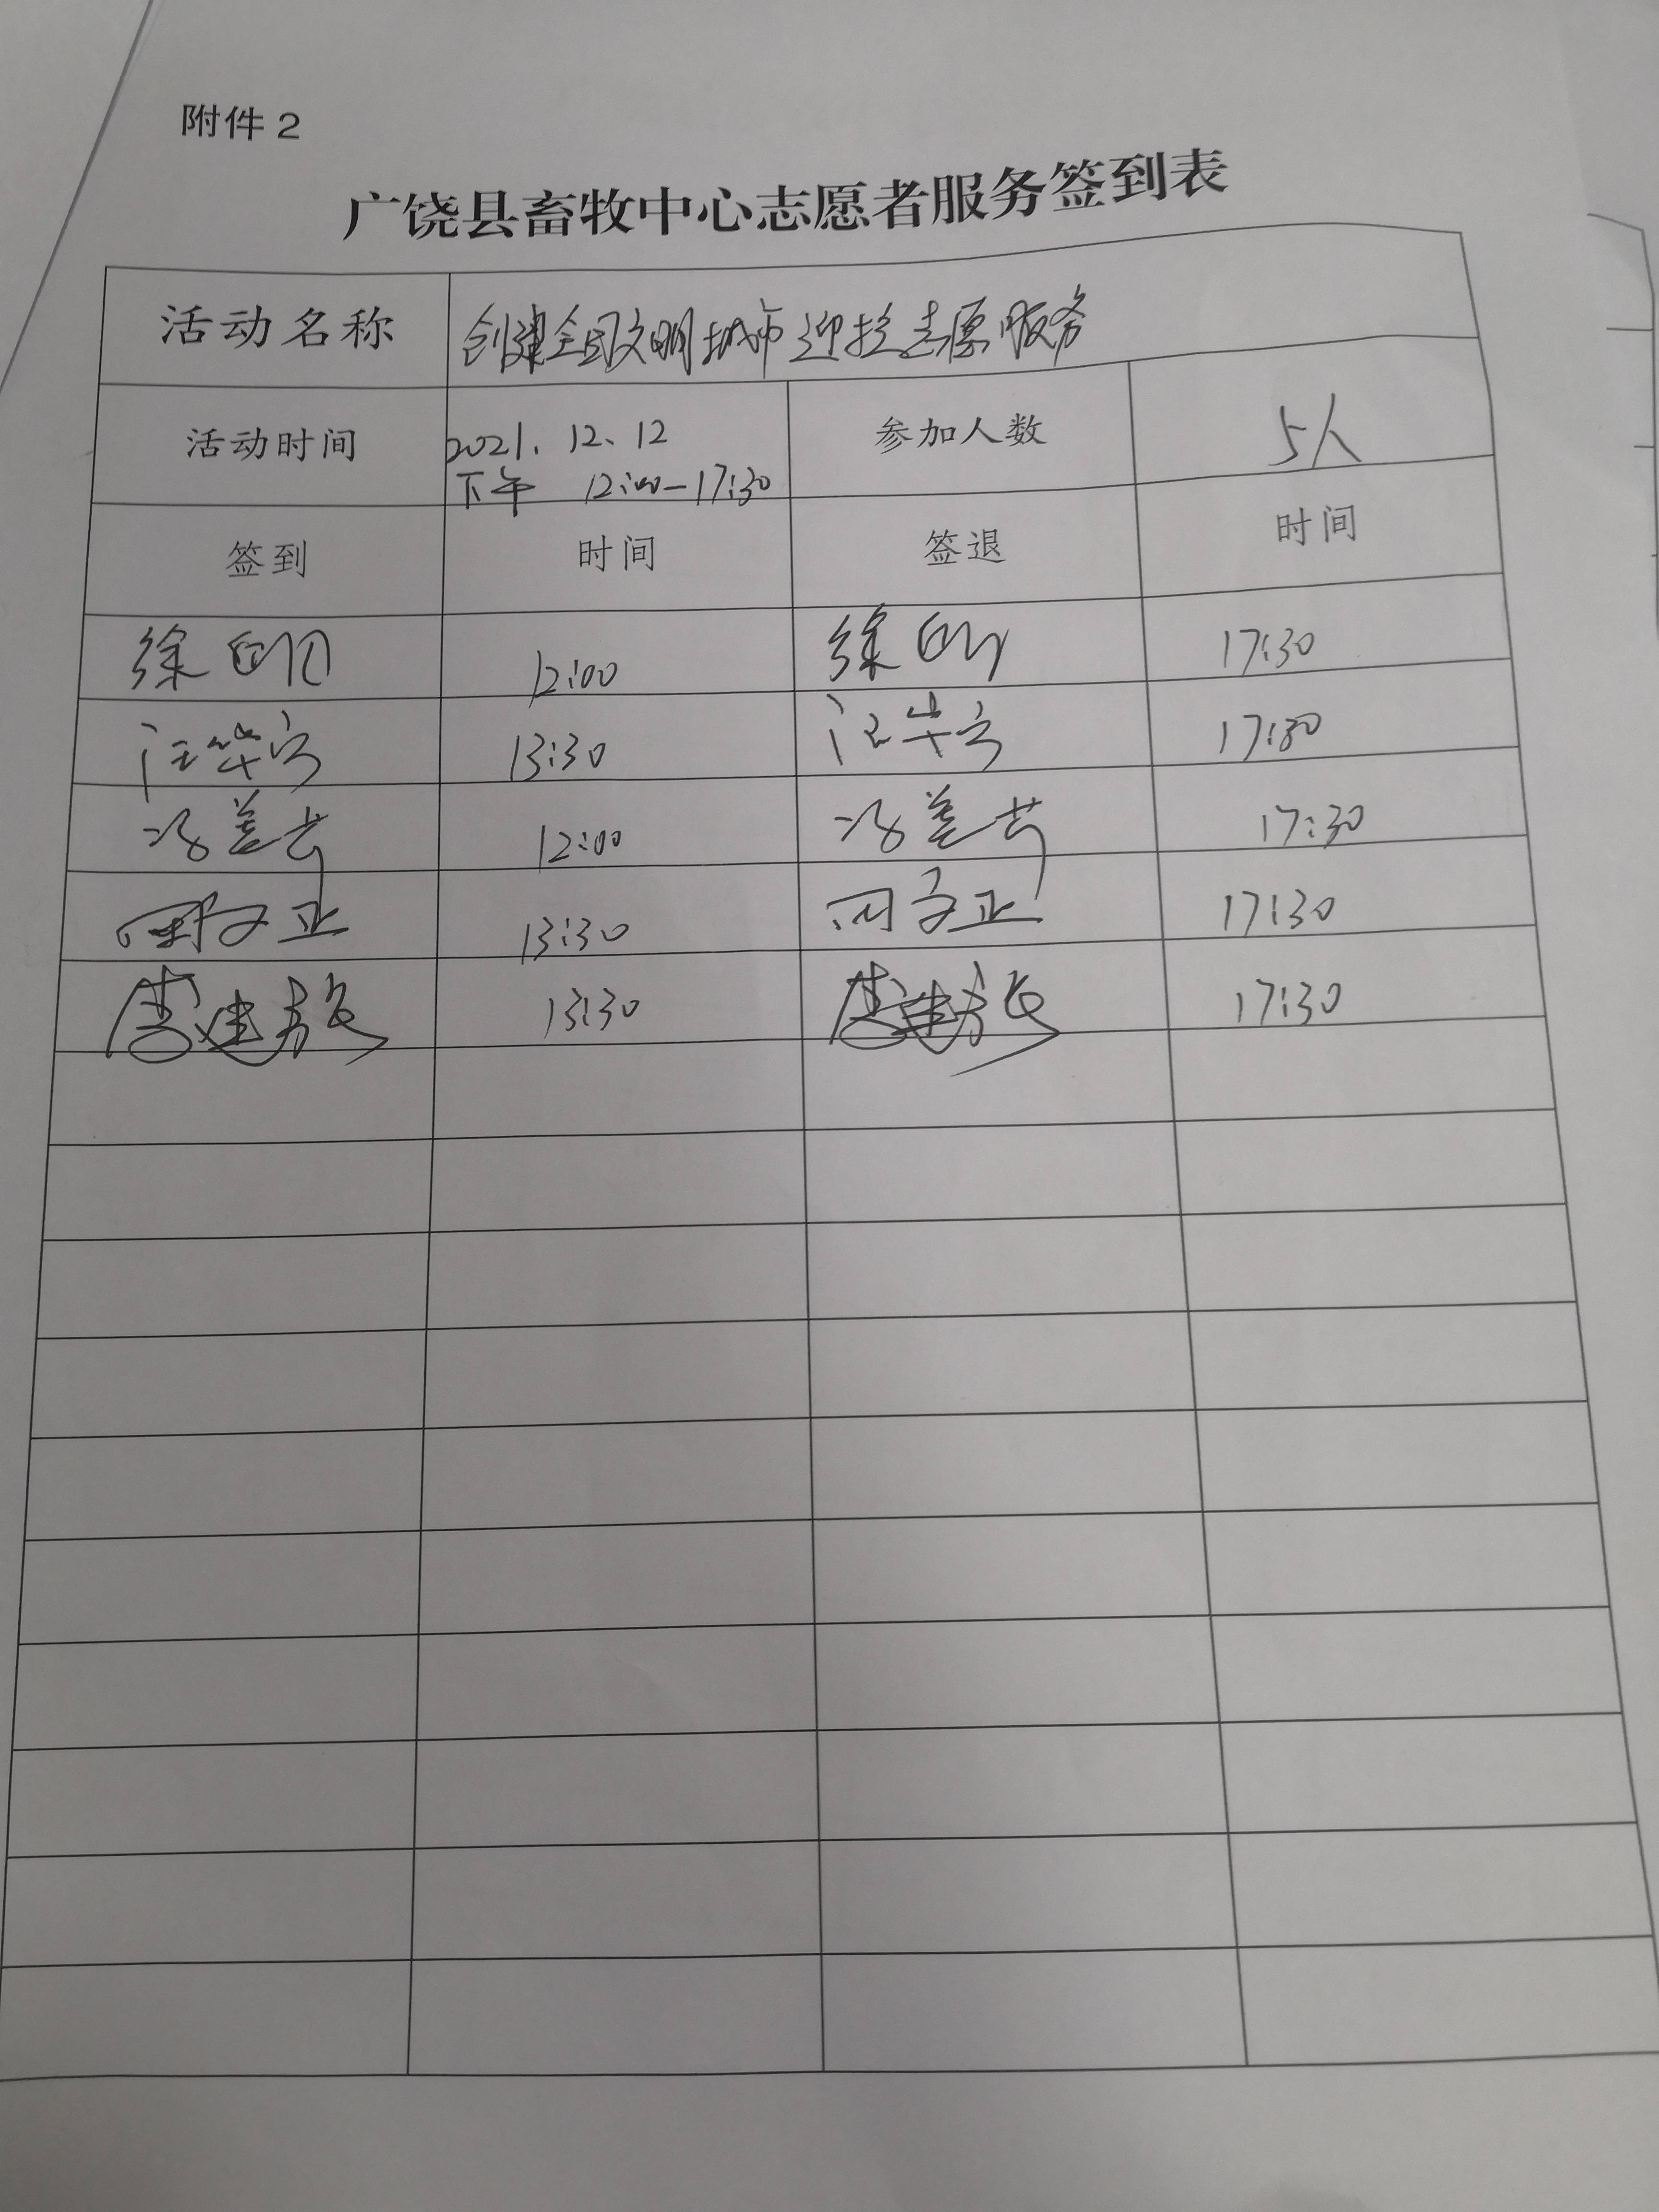 附件2
广饶县畜牧中心志愿者服务签到表
活动名称 创建全国文明城市迎检志愿服务
活动时间 2021.12、12 参加人数 5人
下午 12:00-17:30
签到 时间 签退 时间
徐 12:00 徐 17:30
汪 13:30 汪 17:30
冯 12:00 冯 17:30
周文正 13:30 周文正 17:30
李建 13:30 李建 17:30